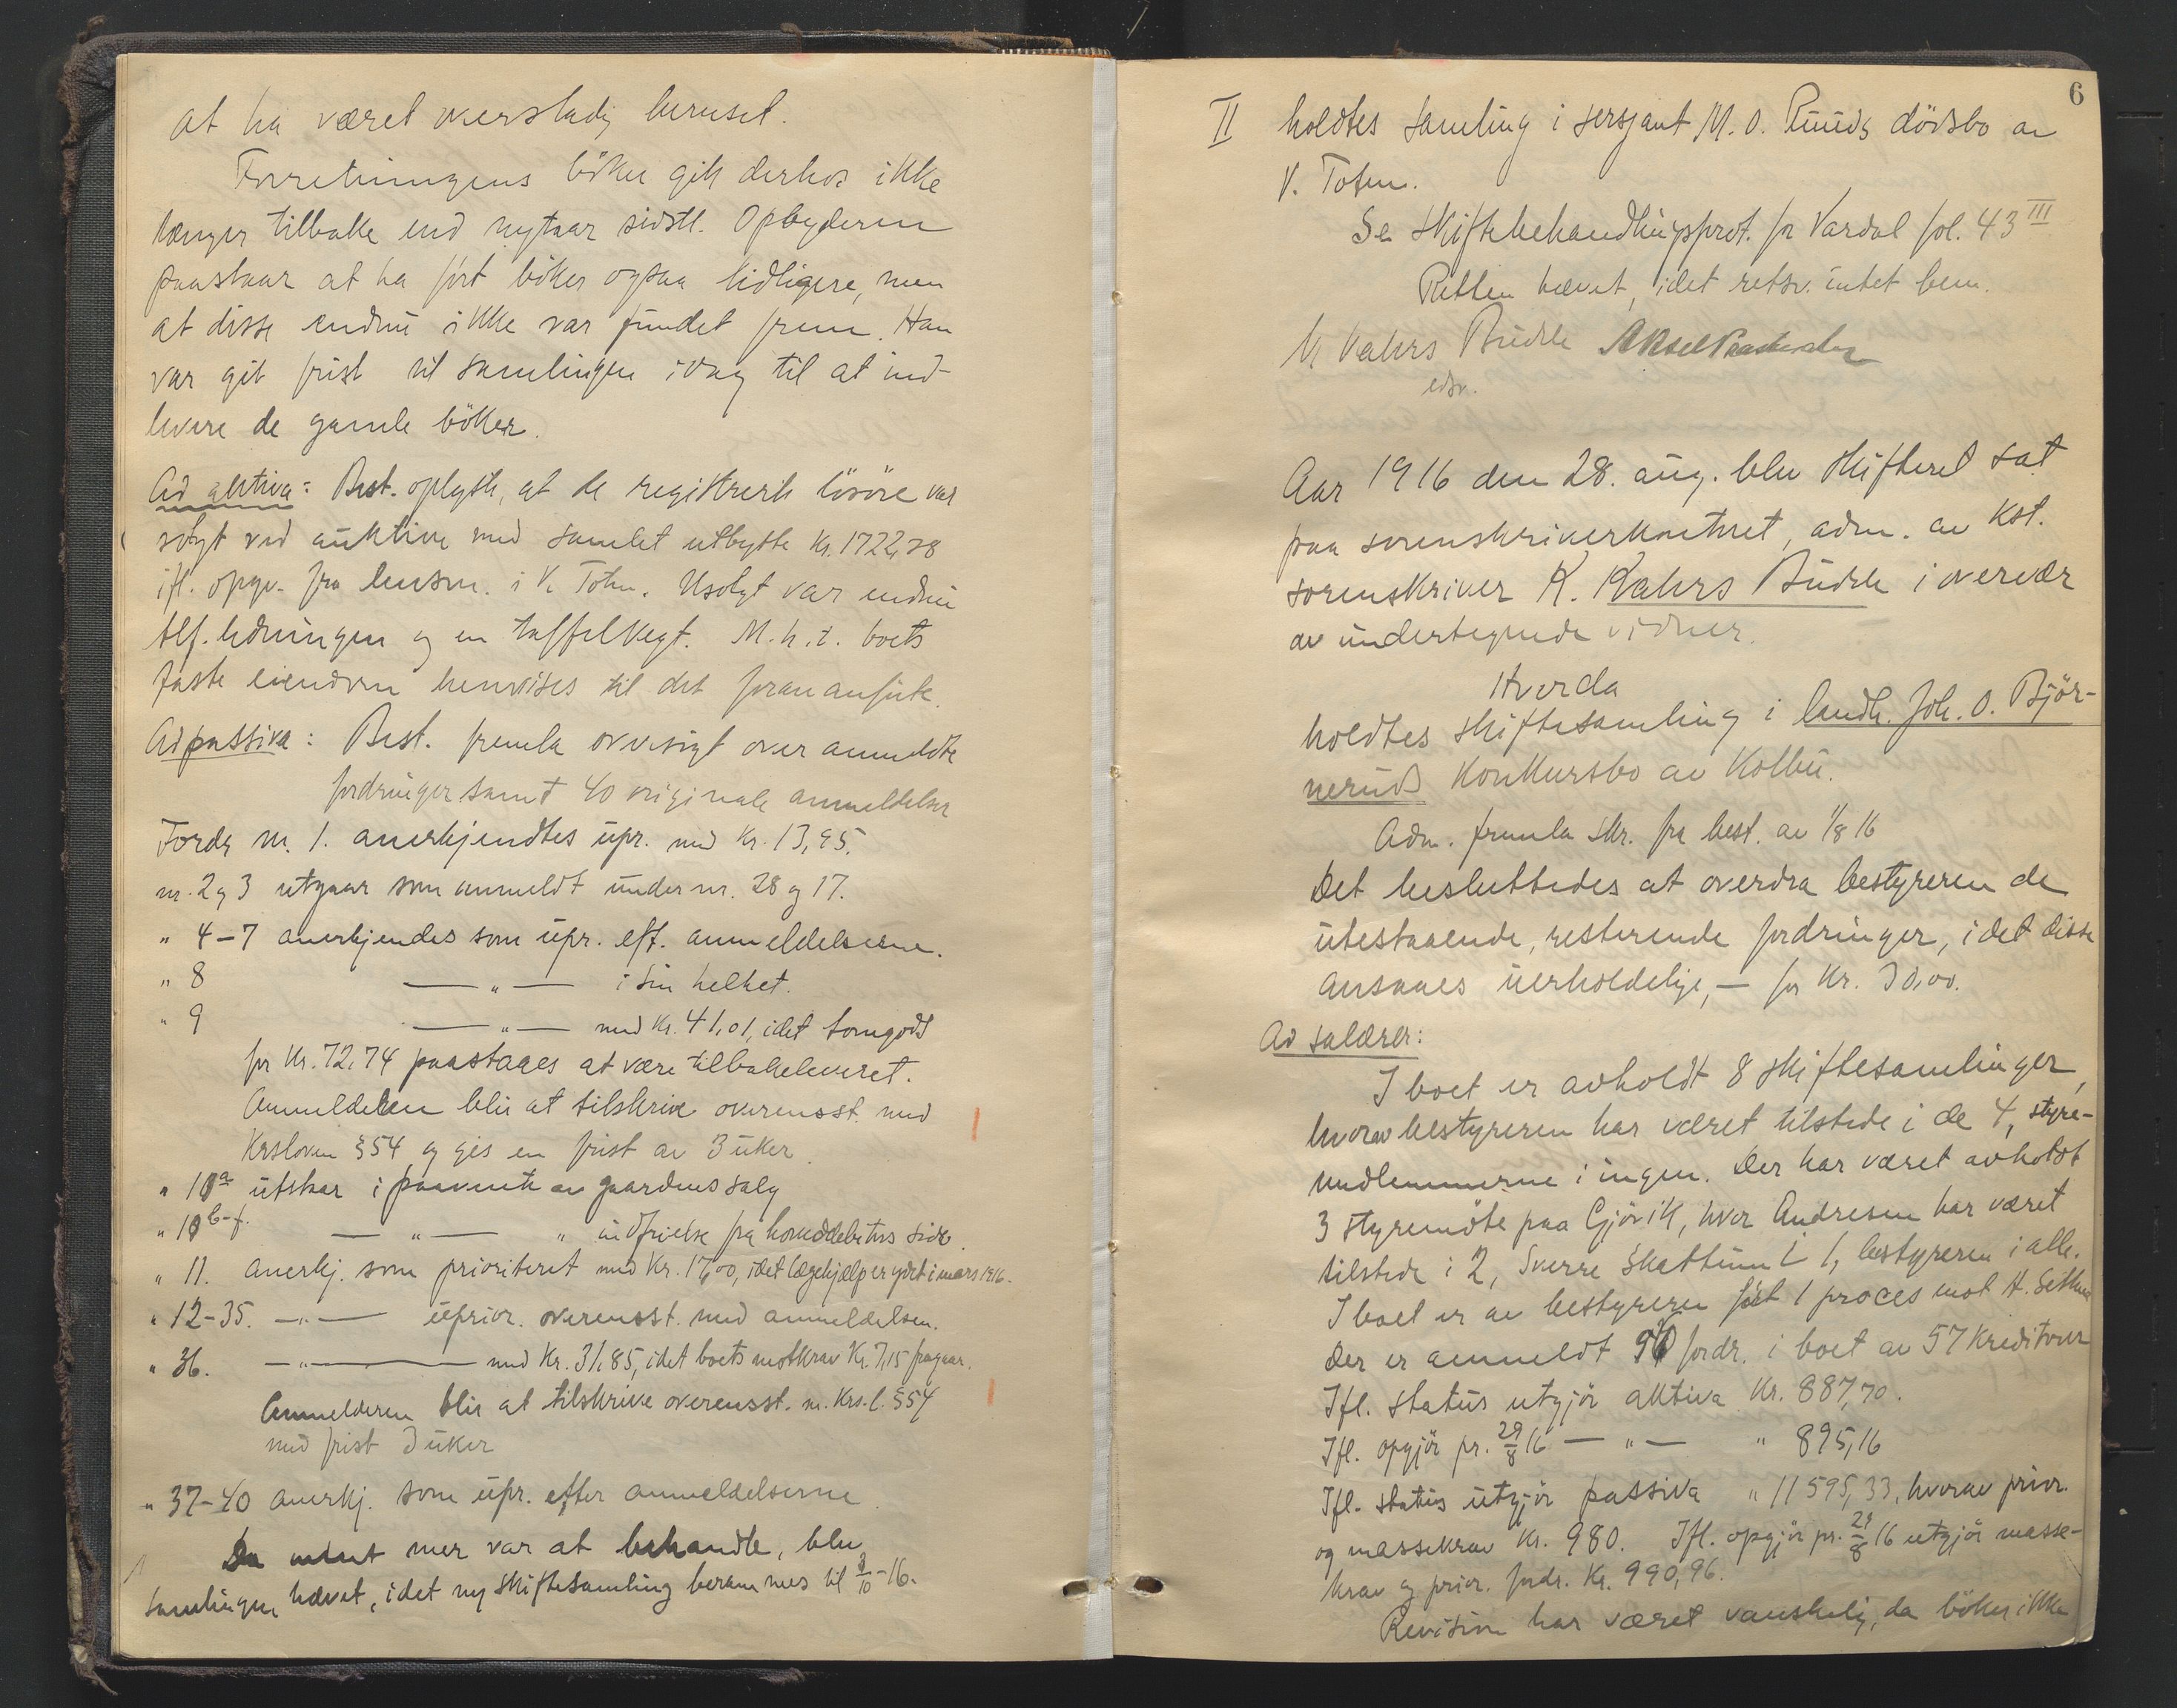 at ha været overstadig beruset.
Forretningens böker gik derhos ikke
længer tilbake end nytaar sidstl. Opbyderen
paastaar at ha ført böker ogsaa tidligere, men
at disse endnu ikke var fundet frem. Han
var git frist til samlingen idag til at ind-
levere de gamle böker.
Ad aktiva: Best. oplyste, at de registrerte lösöre var
solgt ved auktion med samlet utbytte Kr. 1722,28
ifl. opgv. fra lensm. i V. Toten. Usolgt var endnu
tlf. ledningen og en taffelvegt. M.h.t. boets
faste eiendom henvises til det foran anførte.
Ad passiva: Best. fremla oversigt over anmeldte
fordringer samt 40 originale anmeldelser
Fordr nr. 1. anerkjendtes upr. med Kr. 13,95.
nr. 2 og 3 utgaar som anmeldt under nr. 28 og 17.
" 4-7 anerkjendes som upr. eft. anmeldelserne.
" 8 — " — i sin helhet.
" 9 — " — med Kr. 41,01, idet tomgods
for Kr. 72,74 paastaaes at være tilbakeleveret.
Anmelderen blir at tilskrive overensst. med
Krsloven § 54 og gis en frist av 3 uker.
" 10 a utstaar i paavente av gaardens salg
" 10 b-f. — " — " indfrielse fra hoveddebitors side.
" 11. anerkj. som prioritert med Kr. 17,00, idet lægehjælp er ydet i mars 1916.
" 12-35. — " — uprior. overensst. med anmeldelsen.
" 36. — " — med Kr. 31,85, idet boets motkrav Kr. 7,15 fragaar.
Anmelderen blir at tilskrive overensst. m. Krs.l. § 54
med frist 3 uker
" 37-40 anerkj. som upr. efter anmeldelserne.
Da intet mer var at behandle, blev
samlingen hævet, idet ny skiftesamling berammes til 2/10-16.
6
II holdtes samling i sersjant M. O. Ruuds dödsbo av
V. Toten.
Se skiftebehandlingsprot. for Vardal fol. 43 III
Retten hævet, idet retsv. intet bem.
K Kahrs Budde Aksel
edsv.
Aar 1916 den 28. aug. blev skifteret sat
paa sorenskriverkontoret, adm. av kst.
sorenskriver K. Kahrs Budde i overvær
av undertegnede vidner.
Hverda
holdtes skiftesamling i landh. Joh. O. Björ-
neruds konkursbo av Kolbu.
Adm. fremla skr. fra best. av 1/8 16
Det besluttedes at overdra bestyreren de
utestaaende, resterende fordringer, idet disse
ansaaes uerholdelige, — for Kr. 30,00.
Ad salærer:
I boet er avholdt 8 skiftesamlinger,
hvorav bestyreren har været tilstede i de 4, styre-
medlemmerne i ingen. Der har været avholdt
3 styremöte paa Gjövik, hvor Andresen har været
tilstede i 2, Sverre Skattum i 1, bestyreren i alle.
I boet er av bestyreren ført 1 proces mot H.
Der er anmeldt fordr. i boet av 57 kreditorer
Ifl. status utgjör aktiva Kr. 887,70.
Ifl. opgjör pr. 29/8 16 — " — " 895,16
Ifl. status utgjör passiva " 11 595,33, hvorav prior.
og massekrav Kr. 980. Ifl. opgjör pr. 29/8 16 utgjör masse-
krav og prior. fordr. Kr. 990,96.
Revision har været vanskelig, da böker ikke